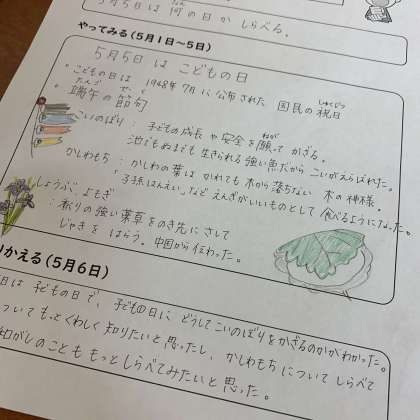 5月5日は何の日かしらべる。
やってみる(5月1日～5日)
5月5日は こどもの日
・こどもの日は 1948年7月に公布された 国民の祝日
しゅくじつ
たんご せっく
・端午の節句
こいのぼり：子どもの成長や安全を願ってかざる。
ねが
池でもぬまでも生きられる強い魚だからこいがえらばれた。
かしわもち：かしわの葉は かれても木から落ちない 木の神様。
「子孫はんえい」など えんぎがいいものとして 食べるようになった。
しょうぶ、よもぎ
：香りの強い薬草をのき先にさして
じゃきを はらう。中国から伝わった。
りかえる(5月6日)
日は 子どもの日で、子どもの日に どうしてこいのぼりをかざるのかがわかった。
ついてもっとくわしく知りたいと思ったし、かしわもちについてしらべて
和がしのことも もっとしらべてみたいと思った。